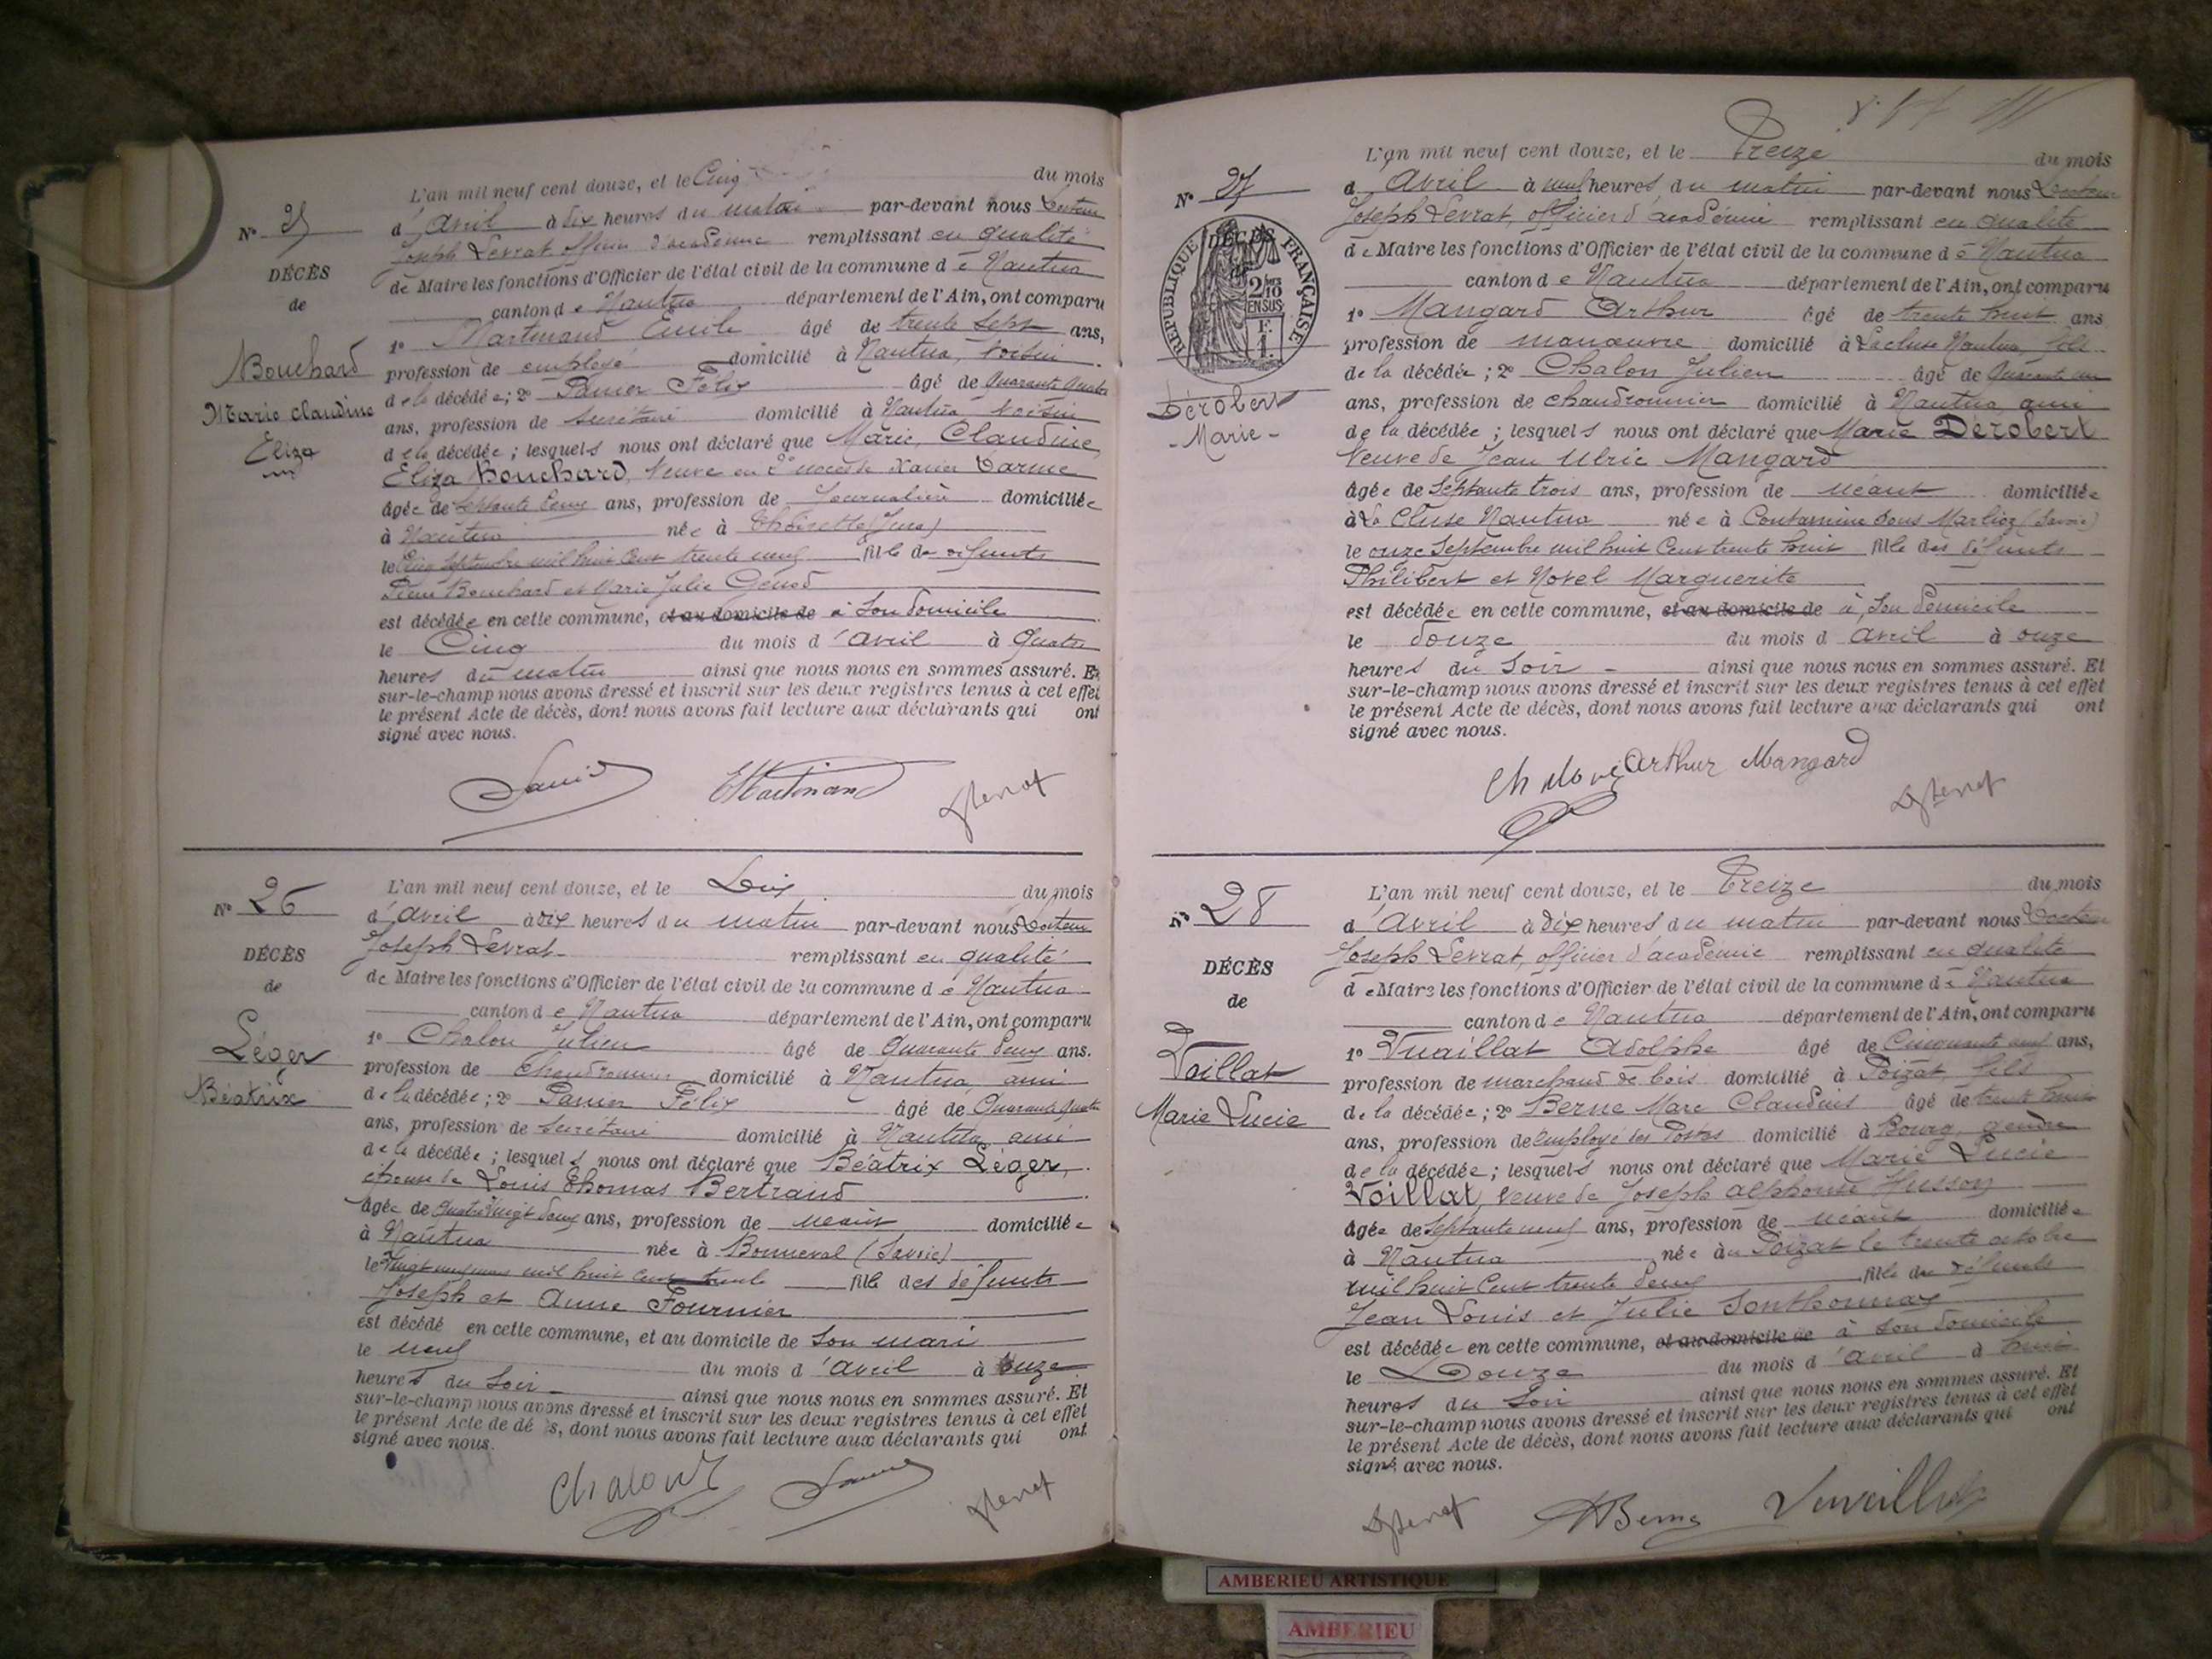 L'an mil neuf cent douze, et le Cinq du mois
N° 25
d'avril à dix heures du matin par-devant nous Docteur
Joseph Levrat officier d'académie remplissant en qualité
DÉCÈS
de Maire les fonctions d'Officier de l'état civil de la commune de Nantua
de
canton de Nantua département de l'Ain, ont comparu
1° Martinand Emile âgé de trente sept ans,
Bouchard
profession de employé domicilié à Nantua, voisin
Marie Claudine
de la décédée; 2° Félix âgé de Quarante quatre
Eliza
ans, profession de secrétaire domicilié à Nantua voisin
de la décédée; lesquels nous ont déclaré que Marie, Claudine,
Eliza Bouchard, Veuve en 2e noces de Xavier Darme
âgée de septante deux ans, profession de Journalière domiciliée
à Nantua née à Thoirette (Jura)
le Cinq septembre mil huit cent trente neuf fille de défunts
Pierre Bouchard et Marie Julie Genod
est décédée en cette commune, et au domicile de à son domicile
le Cinq du mois d'avril à quatre
heures du matin ainsi que nous nous en sommes assuré. Et
sur-le-champ nous avons dressé et inscrit sur les deux registres tenus à cet effet
le présent Acte de décès, dont nous avons fait lecture aux déclarants qui ont
signé avec nous.
EMartinand
N° 26
L'an mil neuf cent douze, et le Dix du mois
d'avril à dix heures du matin par-devant nous Docteur
Joseph Levrat remplissant en qualité
DÉCÈS
de Maire les fonctions d'Officier de l'état civil de la commune de Nantua
de
canton de Nantua département de l'Ain, ont comparu
Léger
1° Chalon Julien âgé de Quarante deux ans.
Béatrix
profession de Chaudronnier domicilié à Nantua, ami
de la décédée; 2° Félix âgé de Quarante quatre
ans, profession de secrétaire domicilié à Nantua ami
de la décédée; lesquels nous ont déclaré que Béatrix Léger,
épouse de Louis Thomas Bertrand
âgée de quatre vingt deux ans, profession de néant domiciliée
à Nantua née à Bonneval (Savoie)
le vingt neuf mars mil huit cent trente fille des défunts
Joseph et Anne Fournier
est décédé en cette commune, et au domicile de son mari
le neuf du mois d'avril à onze
heures du soir ainsi que nous nous en sommes assuré. Et
sur-le-champ nous avons dressé et inscrit sur les deux registres tenus à cet effet
le présent Acte de décès, dont nous avons fait lecture aux déclarants qui ont
signé avec nous.
Chalon
L'an mil neuf cent douze, et le Treize du mois
N° 27
d'Avril à neuf heures du matin par-devant nous Docteur
Joseph Levrat, officier d'académie remplissant en qualité
RÉPUBLIQUE FRANÇAISE
DÉCÈS
de
2/10 EN SUS
1 F.
de Maire les fonctions d'Officier de l'état civil de la commune de Nantua
canton de Nantua département de l'Ain, ont comparu
1° Mangard Arthur âgé de trente huit ans
profession de manœuvre domicilié à La cluse Nantua, fils
Dérobert
de la décédée; 2° Chalon Julien âgé de Quarante un
- Marie -
ans, profession de chaudronnier domicilié à Nantua, ami
de la décédée; lesquels nous ont déclaré que Marie Dérobert
Veuve de Jean Ulric Mangard
âgée de septante trois ans, profession de néant domiciliée
à La Cluse Nantua née à Contamine sous Marlioz (Savoie)
le onze septembre mil huit cent trente huit fille des défunts
Philibert et Novel Marguerite
est décédée en cette commune, et au domicile de à son domicile
le douze du mois d avril à onze
heures du soir ainsi que nous nous en sommes assuré. Et
sur-le-champ nous avons dressé et inscrit sur les deux registres tenus à cet effet
le présent Acte de décès, dont nous avons fait lecture aux déclarants qui ont
signé avec nous.
Arthur Mangard
N° 28
L'an mil neuf cent douze, et le Treize du mois
d'Avril à dix heures du matin par-devant nous Docteur
Joseph Levrat, officier d'académie remplissant en qualité
DÉCÈS
de Maire les fonctions d'Officier de l'état civil de la commune de Nantua
de
canton de Nantua département de l'Ain, ont comparu
Voillat
1° Vuaillat Adolphe âgé de Cinquante neuf ans,
profession de marchand de bois domicilié à Poizat, fils
Marie Lucie
de la décédée; 2° Berne Marc Claudius âgé de trente huit
ans, profession de employé des Postes domicilié à Bourg, gendre
de la décédée; lesquels nous ont déclaré que Marie Lucie
Voillat, veuve de Joseph Alphonse Husson
âgée de septante neuf ans, profession de néant domiciliée
à Nantua née au Poizat le trente octobre
mil huit cent trente deux fille de défunts
Jean Louis et Julie Sonthonnax
est décédée en cette commune, et au domicile de à son domicile
le Douze du mois d'avril à huit
heures du soir ainsi que nous nous en sommes assuré. Et
sur-le-champ nous avons dressé et inscrit sur les deux registres tenus à cet effet
le présent Acte de décès, dont nous avons fait lecture aux déclarants qui ont
signé avec nous.
Berne
AMBERIEU ARTISTIQUE
AMBERIEU